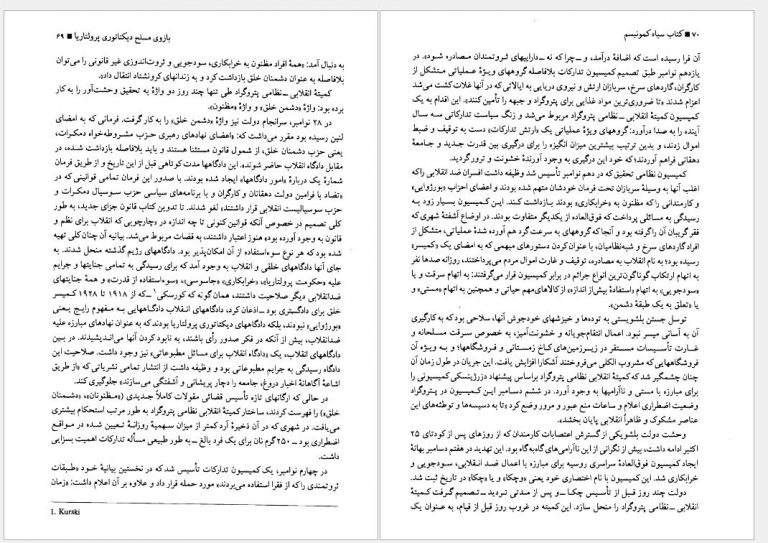 بازوی مسلح دیکتاتوری پرولتاریا ■ ۶۹
به دنبال آمد: «همهٔ افراد مظنون به خرابکاری، سودجویی و ثروت‌اندوزی غیر قانونی را می‌توان
بلافاصله به عنوان دشمنان خلق بازداشت کرد و به زندانهای کرونشتاد انتقال داد».
کمیتهٔ انقلابی ـ نظامی پتروگراد طی تنها چند روز دو واژهٔ به تحقیق وحشت‌آور را به کار
برده بود: واژهٔ «دشمن خلق» و واژهٔ «مظنون».
در ۲۸ نوامبر، سرانجام دولت نیز واژهٔ «دشمن خلق» را به کار گرفت. فرمانی که به امضای
لنین رسیده بود مقرر می‌داشت که: «اعضای نهادهای رهبری حزب مشروطه‌خواه دمکرات،
یعنی حزب دشمنان خلق، از شمول قانون مستثنا هستند و باید بلافاصله بازداشت شده، در
مقابل دادگاه انقلاب حاضر شوند». این دادگاهها مدت کوتاهی قبل از این تاریخ و از طریق فرمان
شمارهٔ یک دربارهٔ «امور دادگاهها» ایجاد شده بودند. با صدور این فرمان تمامی قوانینی که در
«تضاد با فرامین دولت دهقانان و کارگران و یا برنامه‌های سیاسی حزب سوسیال دمکرات و
حزب سوسیالیست انقلابی قرار داشتند، لغو شدند. تا تدوین کتاب قانون جزای جدید، به طور
کلی تصمیم در خصوص آنکه قوانین کنونی تا چه اندازه در «چارچوبی که انقلاب برای نظم و
قانون به وجود آورده بود» هنوز اعتبار داشتند، به قضات مربوط می‌شد. بیانیه آن چنان کلی تهیه
شده بود که هر نوع سوءاستفاده از آن امکان‌پذیر بود. دادگاههای رژیم گذشته منحل شدند. به
جای آنها دادگاههای خلقی و انقلاب به وجود آمد که برای رسیدگی به تمامی جنایتها و جرایم
علیه «حکومت پرولتاریا»، «خرابکاری»، «جاسوسی»، «سوءاستفاده از قدرت» و همهٔ جنایتهای
ضدانقلابی دیگر صلاحیت داشتند، همان گونه که کورسکی۱ ـ که از ۱۹۱۸ تا ۱۹۲۸ کمیسر
خلق برای دادگستری بود ـ اذعان کرد، دادگاههای انقلاب دادگاههایی به مفهوم رایج یعنی
«بورژوایی» نبودند، بلکه دادگاههای دیکتاتوری پرولتاریا بودند که به عنوان نهادهای مبارزه علیه
ضدانقلاب، بیش از آنکه در فکر صدور رأی باشند، به نابود کردن آنها می‌اندیشیدند. در بین
دادگاههای انقلاب، یک «دادگاه انقلاب برای مسائل مطبوعاتی» نیز وجود داشت. صلاحیت این
دادگاه رسیدگی به جرایم مطبوعاتی بود و وظیفه داشت از انتشار تمامی نشریاتی که «از طریق
اشاعهٔ آگاهانهٔ اخبار دروغ، جامعه را دچار پریشانی و آشفتگی می‌سازند» جلوگیری کند.
در حالی که ارگانهای تازه تأسیس قضائی مقولات کاملاً جدیدی («مظنونان»، «دشمنان
خلق») را فهرست کردند، ساختار کمیتهٔ انقلابی نظامی پتروگراد به طور مرتب استحکام بیشتری
می‌یافت. در شهری که در آن ذخیرهٔ آرد کمتر از میزان سهمیهٔ روزانهٔ تعیین شده در مواقع
اضطراری بود ـ ۲۵۰ گرم نان برای یک فرد بالغ ـ به طور طبیعی مسألهٔ تدارکات اهمیت بسزایی
داشت.
در چهارم نوامبر، یک کمیسیون تدارکات تأسیس شد که در نخستین بیانیهٔ خود «طبقات
ثروتمندی را که از فقرا استفاده می‌بردند» مورد حمله قرار داد و علاوه بر آن اعلام داشت: «زمان
1. Kurski
۷۰ ■ کتاب سیاه کمونیسم
آن فرا رسیده است که اضافهٔ درآمد، و ـ چرا که نه ـ داراییهای ثروتمندان مصادره شود». در
یازدهم نوامبر طبق تصمیم کمیسیون تدارکات بلافاصله گروههای ویژهٔ عملیاتی متشکل از
کارگران، گاردهای سرخ، سربازان ارتش و نیروی دریایی به ایالاتی که در آنها غلات کشت می‌شد
اعزام شدند «تا ضروری‌ترین مواد غذایی برای پتروگراد و جبهه را تأمین کنند». این اقدام به یک
کمیتهٔ انقلابی ـ نظامی پتروگراد مربوط می‌شد و زنگ سیاست تدارکاتی سه سال
آینده را به صدا درآورد: گروههای ویژهٔ عملیاتی یک «ارتش تدارکات» دست به توقیف و ضبط
اموال زدند، و بدین ترتیب بیشترین میزان انگیزه را برای درگیری بین قدرت جدید و جامعهٔ
دهقانی فراهم آوردند؛ که خود این درگیری به وجود آورندهٔ خشونت و ترور گردید.
کمیسیون نظامی تحقیق که در دهم نوامبر تأسیس شد وظیفه داشت افسران ضد انقلابی را که
اغلب آنها به وسیلهٔ سربازان تحت فرمان خودشان متهم شده بودند و اعضای احزاب «بورژوایی»
و کارمندانی را که مظنون به «خرابکاری» بودند بازداشت کنند. این کمیسیون بسیار زود به
رسیدگی به مسائلی پرداخت که فوق‌العاده از یکدیگر متفاوت بودند. در اوضاع آشفتهٔ شهری که
فقر گریبان آن را گرفته بود و آنجا که گروههای به سرعت گرد هم آورده شدهٔ عملیاتی، متشکل از
افراد گاردهای سرخ و شبه‌نظامیان، با عنوان کردن دستورهای مبهمی که به امضای یک «کمیسر»
رسیده بود؛ به نام انقلاب به مصادره، توقیف و غارت اموال مردم می‌پرداختند، روزانه صدها نفر
به اتهام ارتکاب گوناگون‌ترین انواع جرائم در برابر کمیسیون قرار می‌گرفتند: به اتهام سرقت و یا
«سودجویی» به اتهام «استفادهٔ بیش از اندازه» از کالاهای مهم حیاتی و همچنین به اتهام «مستی» و
یا «تعلق به یک طبقهٔ دشمن».
توسل جستن بلشویستی به توده‌ها و خیزشهای خودجوش آنها، سلاحی بود که به کارگیری
آن به آسانی میسر نبود. اعمال انتقام‌جویانه و خشونت‌آمیز، به خصوص سرقت مسلحانه و
غارت تأسیسات مستقر در زیرزمین‌های کاخ زمستانی و فروشگاهها؛ و به ویژه آن
فروشگاههایی که مشروب الکلی می‌فروختند آشکارا افزایش یافت. این جریان در طول زمان آن
چنان چشمگیر شد که کمیتهٔ انقلابی نظامی پتروگراد براساس پیشنهاد دزرژینسکی کمیسیونی را
برای مبارزه با مستی و ناآرامیها به وجود آورد. در ششم دسامبر این کمیسیون در پتروگراد
وضعیت اضطراری اعلام و ساعات منع عبور و مرور وضع کرد «تا به دسیسه‌ها و توطئه‌های این
عناصر مشکوک و ظاهراً انقلابی پایان بخشد».
وحشت دولت بلشویکی از گسترش اعتصابات کارمندان که از روزهای پس از کودتای ۲۵
اکتبر ادامه داشت، بیش از نگرانی از این ناآرامی‌های گاه‌به‌گاه بود. این تهدید در هفتم دسامبر بهانهٔ
ایجاد کمیسیون فوق‌العادهٔ سراسری روسیه برای مبارزه با اعمال ضد انقلابی، سودجویی و
خرابکاری شد. این کمیسیون با نام اختصاری خود یعنی «وچکا» و یا «چکا» در تاریخ ثبت شد.
دولت چند روز قبل از تأسیس چکا ـ و پس از مدتی تردید ـ تصمیم گرفت کمیتهٔ
انقلابی ـ نظامی پتروگراد را منحل سازد. این کمیته در غروب روز قبل از قیام، به عنوان یک